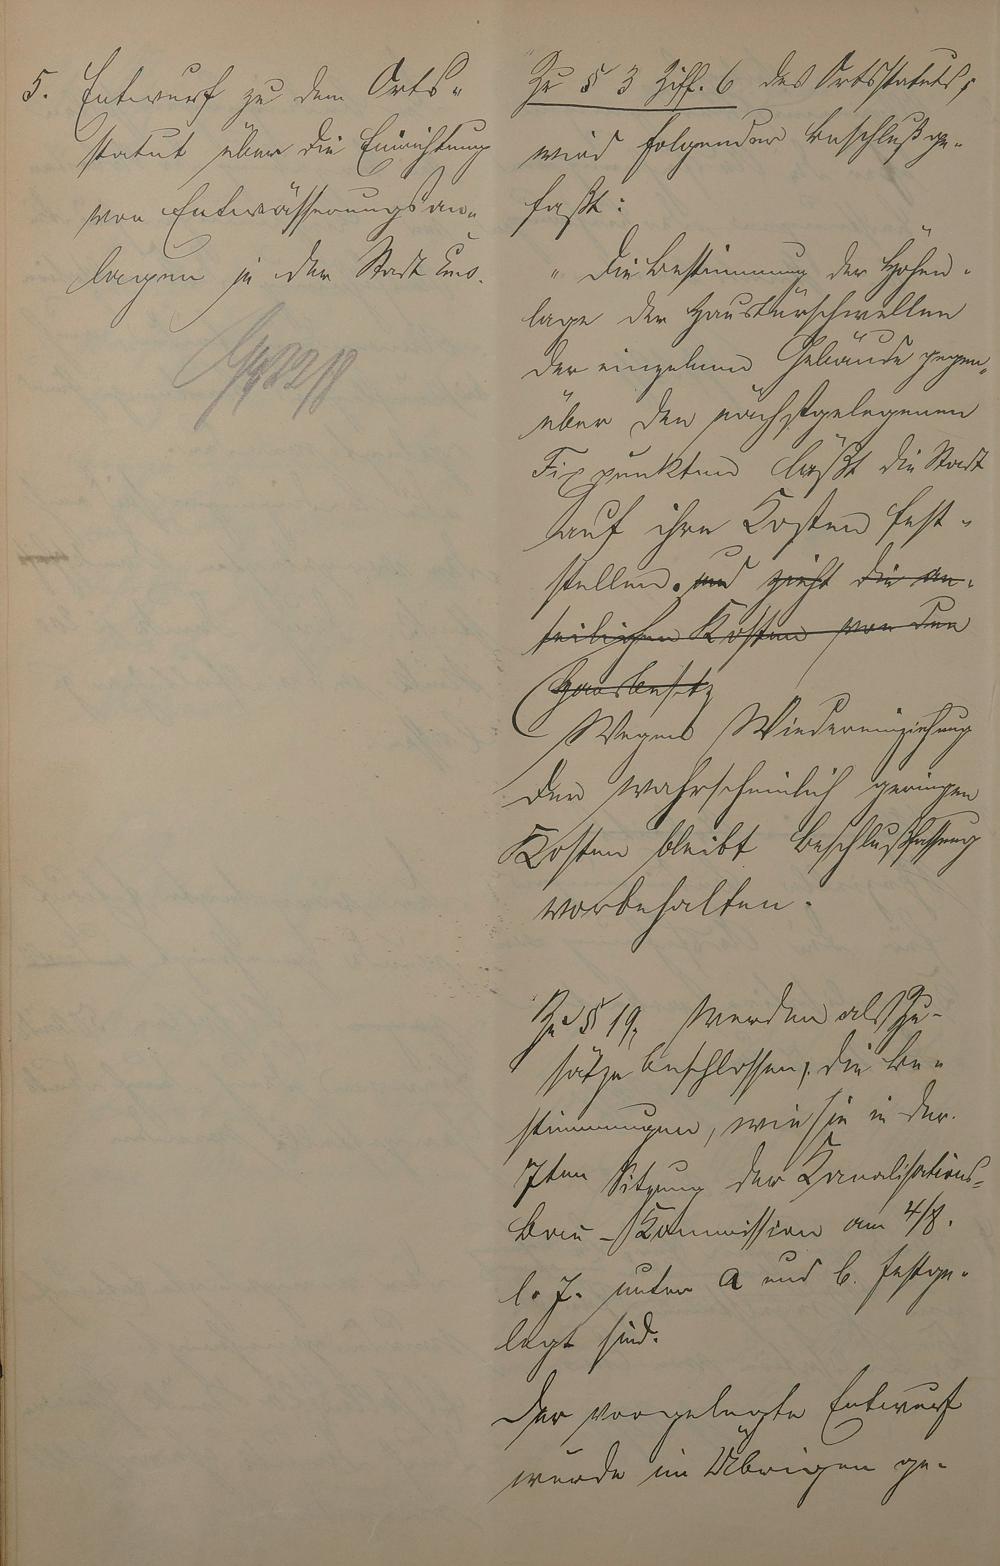 5. Entwurf zu dem Orts-
statut über die Einrichtung
von Entwässerungsan-
lagen in der Stadt
Zu § 3 Ziff. 6 des Ortsstatuts;
wird folgender Beschluß ge-
faßt:
"Die Bestimmung der Höhen-
lage der Haustürschwellen
der einzelnen Gebäude gegen-
über den nächstgelegenen
Fixpunkten läßt die Stadt
auf ihre Kosten fest-
stellen. und zieht die an-
teiligen Kosten von den
Hausbesitz
Wegen Wiedereinziehung
der wahrscheinlich geringen
Kosten bleibt Beschlußfassung
vorbehalten.
Zu § 19, werden als Zu-
sätze beschlossen, die Be-
stimmungen, wie sie in der
7ten Sitzung der Kanalisations-
bau-Kommission am 4/8.
l. J. unter a und b. festge-
legt sind.
Der vorgelegte Entwurf
wurde im Übrigen ge-